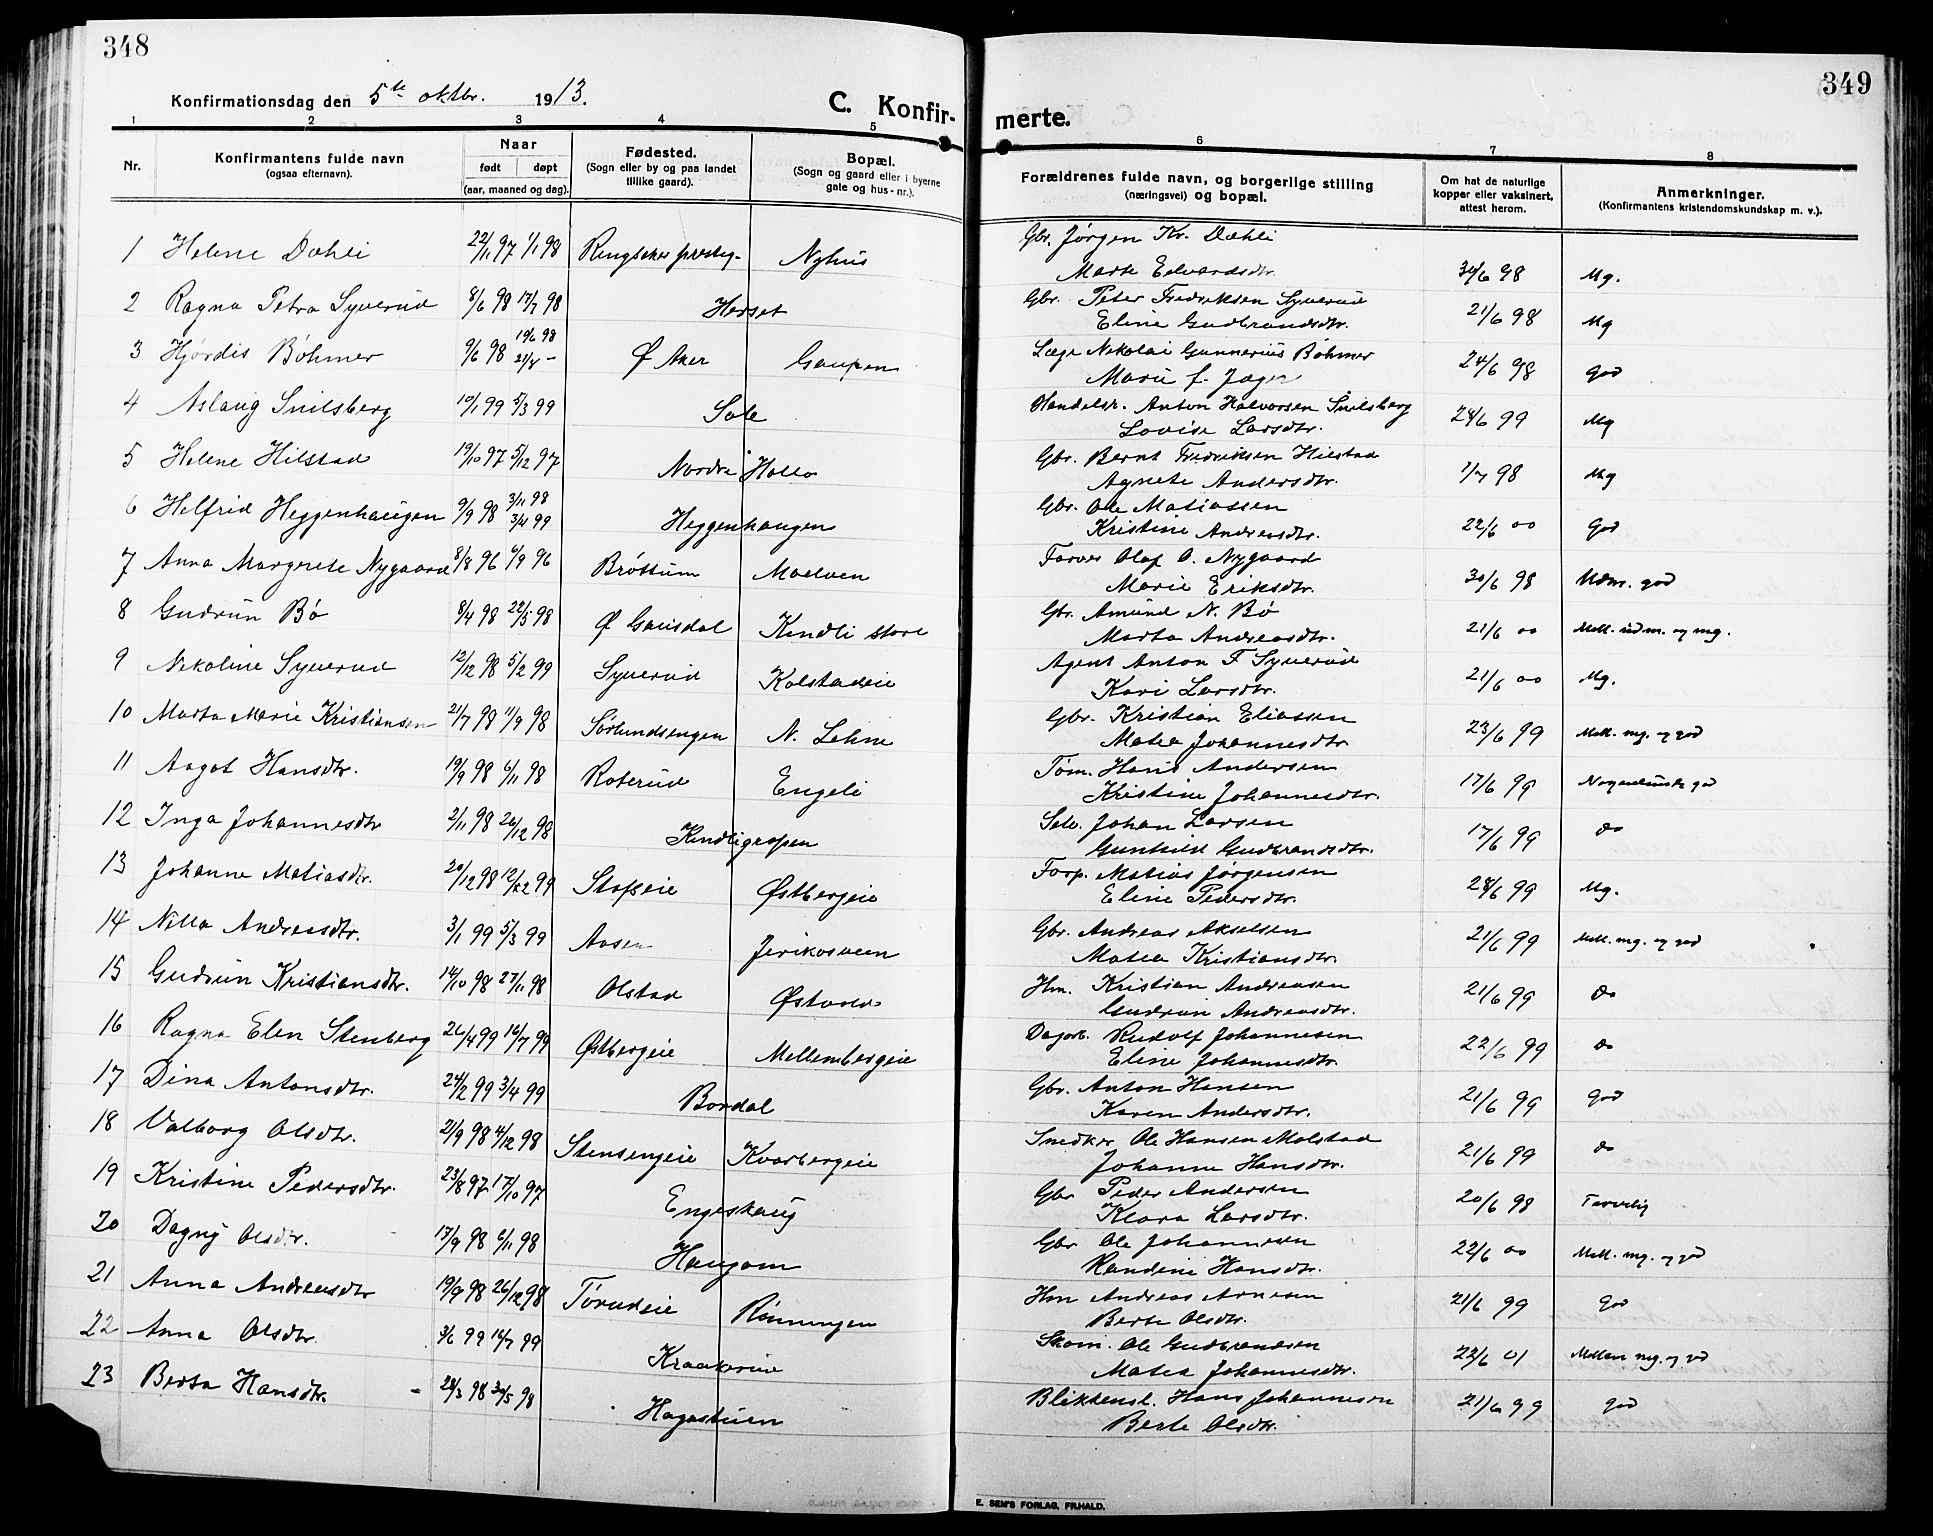 348
Konfirmationsdag den 5te oktbr. 1913.
C. Konfir-
1 2 3 4 5
Nr.
Konfirmantens fulde navn
(ogsaa efternavn).
Naar
født døpt
(aar, maaned og dag).
Fødested.
(Sogn eller by og paa landet
tillike gaard).
Bopæl.
(Sogn og gaard eller i byerne
gate og hus-nr.).
1 Helene Dæhli 22/11 97 1/1 98 Ringsaker prestg. Nyhus
2 Ragna Petra Syverud 8/6 98 17/7 98 Herset
3 Hjørdis Bøhmer 9/6 98 19/6 98 21/8 - Ø Aker Gaupen
4 Aslaug Snilsberg 10/1 99 5/3 99 Sole
5 Helene Hilstad 19/10 97 5/12 97 Nordre Hollo
6 Helfrid Heggenhaugen 9/9 98 3/11 98 3/4 99 Heggenhaugen
7 Anna Margrete Nygaard 8/8 96 6/9 96 Brøttum Moelven
8 Gudrun Bø 8/4 98 22/5 98 Ø Gausdal Kindli store
9 Nikoline Syverud 12/12 98 5/2 99 Syverud Kolstadeie
10 Marta Marie Kristiansen 21/7 98 11/9 98 Sørlundsengen N. Lehne
11 Aagot Hansdtr. 19/9 98 6/11 98 Roterud Engeli
12 Inga Johannesdtr 2/11 98 26/12 98 Kindligropen
13 Johanne Matiasdtr. 20/12 98 12/2 99 Stopeie Østbergeie
14 Nella Andreasdtr. 3/1 99 5/3 99 Aasen Jerikosveen
15 Gudrun Kristiansdtr. 14/10 98 27/11 98 Olstad Østvold
16 Ragna Elen Stenberg 26/4 99 16/7 99 Østbergeie Mellembergeie
17 Dina Antonsdtr. 24/2 99 3/4 99 Bordal
18 Valborg Olsdtr. 21/9 98 4/12 98 Stensengeie Kvarbergeie
19 Kristine Pedersdtr. 23/8 97 17/10 97 Engeshaug
20 Dagny Olsdtr. 17/9 98 6/11 98 Haugom
21 Anna Andreasdtr 19/9 98 26/12 98 Tørudeie Rønningen
22 Anna Olsdtr. 3/6 99 16/7 99 Kraakerud
23 Berta Hansdtr. - 28/3 98 30/5 98 Hagastuen
349
merte.
6 7 8
Forældrenes fulde navn, og borgerlige stilling
(næringsvei) og bopæl.
Om hat de naturlige
kopper eller vaksinert,
attest herom.
Anmerkninger.
(Konfirmantens kristendomskundskap m. v.).
Gbr. Jørgen Kr. Dæhli
Marte Edvardsdtr. 30/6 98 Mg.
Gbr. Peter Fredriksen Syverud
Eline Gudbrandsdtr. 21/6 98 Mg
Læge Nikolai Gunnerius Bøhmer
Marie f. Jæger 24/6 98 god
Handelsb. Anton Halvorsen Snilsberg
Lovise Larsdtr. 28/6 99 Mg
Gbr. Bernt Fredriksen Hilstad
Agnete Andersdtr. 1/7 98 Mg
Gbr. Ole Matiassen
Kristine Andreasdtr. 22/6 00 God
Farver Olaf O. Nygaard
Marie Eriksdtr. 30/6 98 Udm. god
Gbr. Amund N. Bø
Marta Andreasdtr. 21/6 00 Mell. udm. og mg.
Agent Anton F Syverud
Kari Larsdtr. 21/6 00 Mg.
Gbr. Kristian Eliassen
Matea Johannesdtr 23/6 99 Mell. mg. og god
Tøm. Hans Andersen
Kristine Johannesdtr. 17/6 99 Nogenlunde god
Selv. Johan Larsen
Gunhild Gudbrandsdtr. 17/6 99 do
Forp. Matias Jørgensen
Eline Pedersdtr. 28/6 99 Mg.
Gbr. Andreas Akselsen
Matea Kristiansdtr. 21/6 99 Mell. mg. og god
Hm. Kristian Andreasen
Gudrun Andreasdtr. 21/6 99 do
Dagarb. Rudolf Johannesen
Eline Johannesdtr. 22/6 99 do
Gbr. Anton Hansen
Karen Andersdtr. 21/6 99 god
Snedker Ole Hansen Molstad
Johanne Hansdtr. 21/6 99 do
Gbr Peder Andersen
Klara Larsdtr. 20/6 98 Tarvelig
Gbr Ole Johannesen
Randine Hansdtr. 22/6 00 Mell. mg. og god
Hm Andreas Arnesen
Berte Olsdtr. 21/6 99 God
Skom. Ole Gudbrandsen
Matea Johannesdtr. 23/6 01 Mellem mg. og god
Blikkensl. Hans Johannesen
Berte Olsdtr. 21/6 99 god
E. SEM'S FORLAG, FR.HALD.